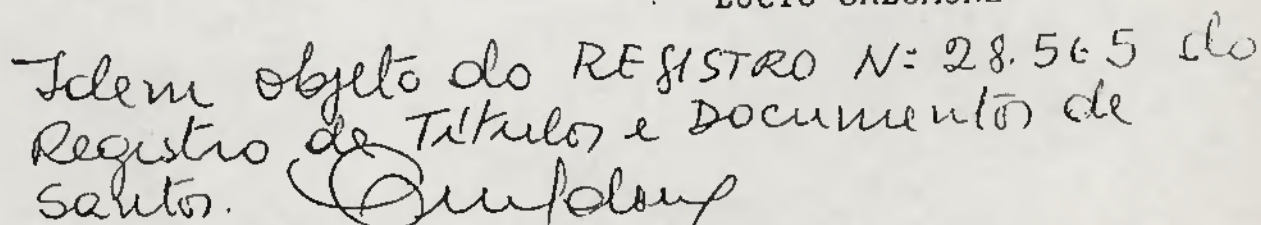 Idem objeto do REGISTRO Nº 28.565 do
Registro de Títulos e Documentos de
Santos.